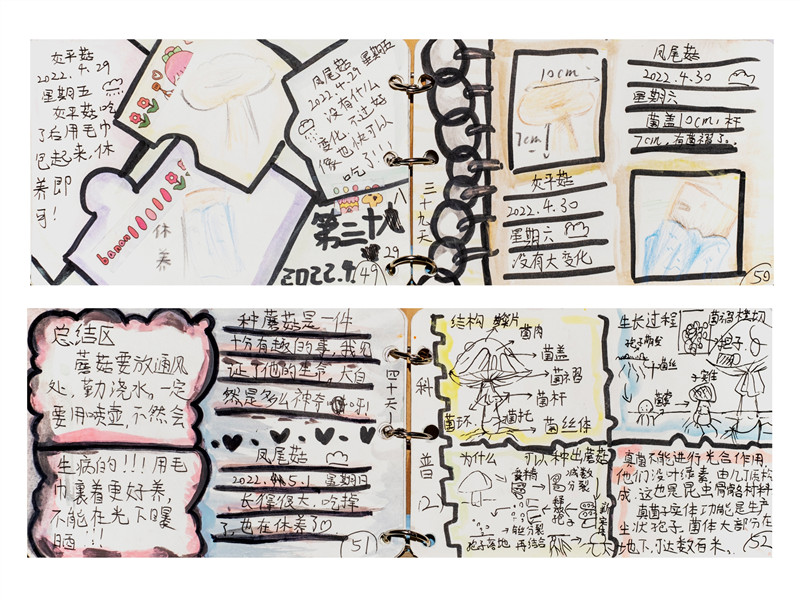 灰平菇
2022.4.29
星期五
灰平菇吃
了后用毛巾
包起来,休
养即
可!
banana
休
养
凤尾菇 星期五
2022.4.29
没有什么
变化,不过好
像也快可以
吃了!!!
第三十八
29
2022.4.
49
三十九天
10cm
7cm
灰平菇
2022.4.30
星期六
没有大变化
凤尾菇
2022.4.30
星期六
菌盖10cm,杆
7cm,有菌褶了。
50
总结区
蘑菇要放通风
处,勤浇水。一定
要用喷壶,不然会
生病的!!!用毛
巾裹着更好养,
不能在光下曝
晒!!!
种蘑菇是一件
十分有趣的事,我见
证了他们的生命,大自
然是多么神奇
凤尾菇
2022.5.1 星期日
长得很大,吃掉
了,也在休养了
四十天
51
科
普
区
结构
菌肉
菌盖
菌褶
菌杆
菌环
菌托
菌丝体
生长过程
孢子
菌丝
为什么
可以种出蘑菇
减数
分裂
孢子落地
分裂
再结合
真菌不能进行光合作用,
他们没叶绿素,由几丁质构
成,这也是昆虫骨骼材料
真菌子实体功能是生产
生状孢子,菌体大部分在
地下,可达数百米。
52